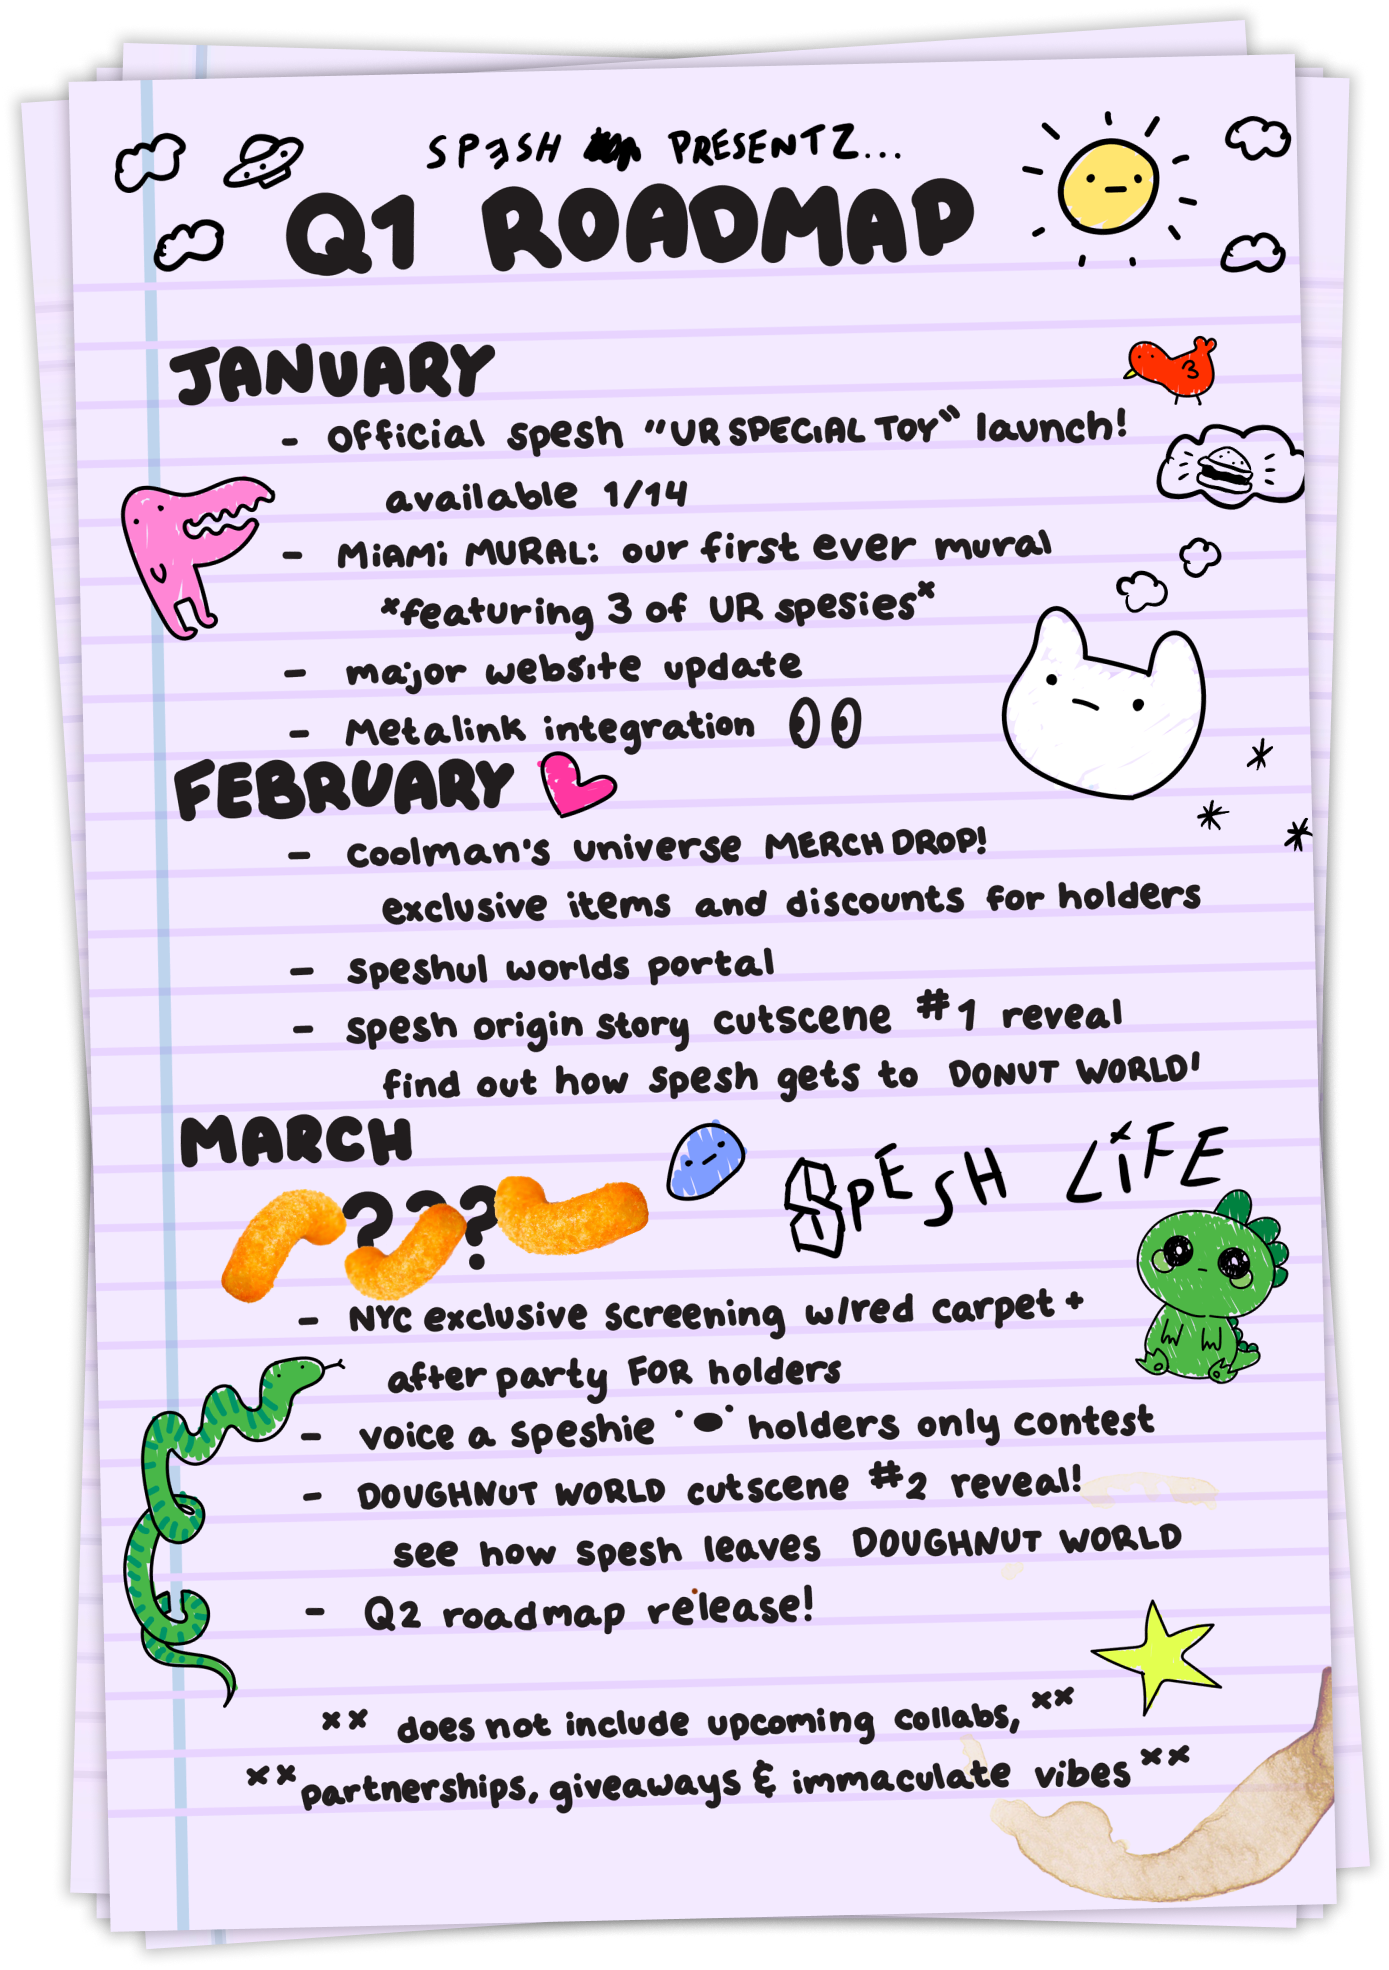 SPESH PRESENTZ...
Q1 ROADMAP
JANUARY
- Official spesh "UR SPECIAL TOY" launch!
available 1/14
- MiAMi MURAL: our first ever mural
*featuring 3 of UR spesies*
- major website update
- Metalink integration
FEBRUARY
- Coolman's universe MERCH DROP!
exclusive items and discounts for holders
- speshul worlds portal
- spesh origin story cutscene #1 reveal
find out how spesh gets to DONUT WORLD'
MARCH
???
SPESH LiFE
- NYC exclusive screening w/red carpet +
after party FOR holders
- voice a speshie holders only contest
- DOUGHNUT WORLD cutscene #2 reveal!
see how spesh leaves DOUGHNUT WORLD
- Q2 roadmap release!
** does not include upcoming collabs, **
**partnerships, giveaways & immaculate vibes**